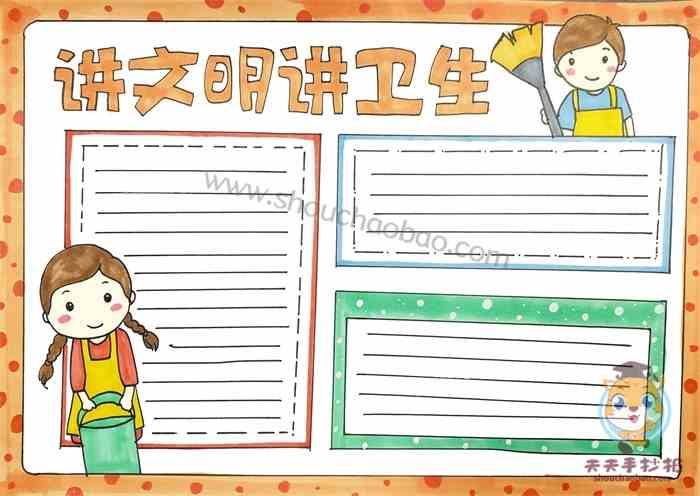 讲文明讲卫生
www.shouchaobao.com
天天手抄报
shouchaobao.com